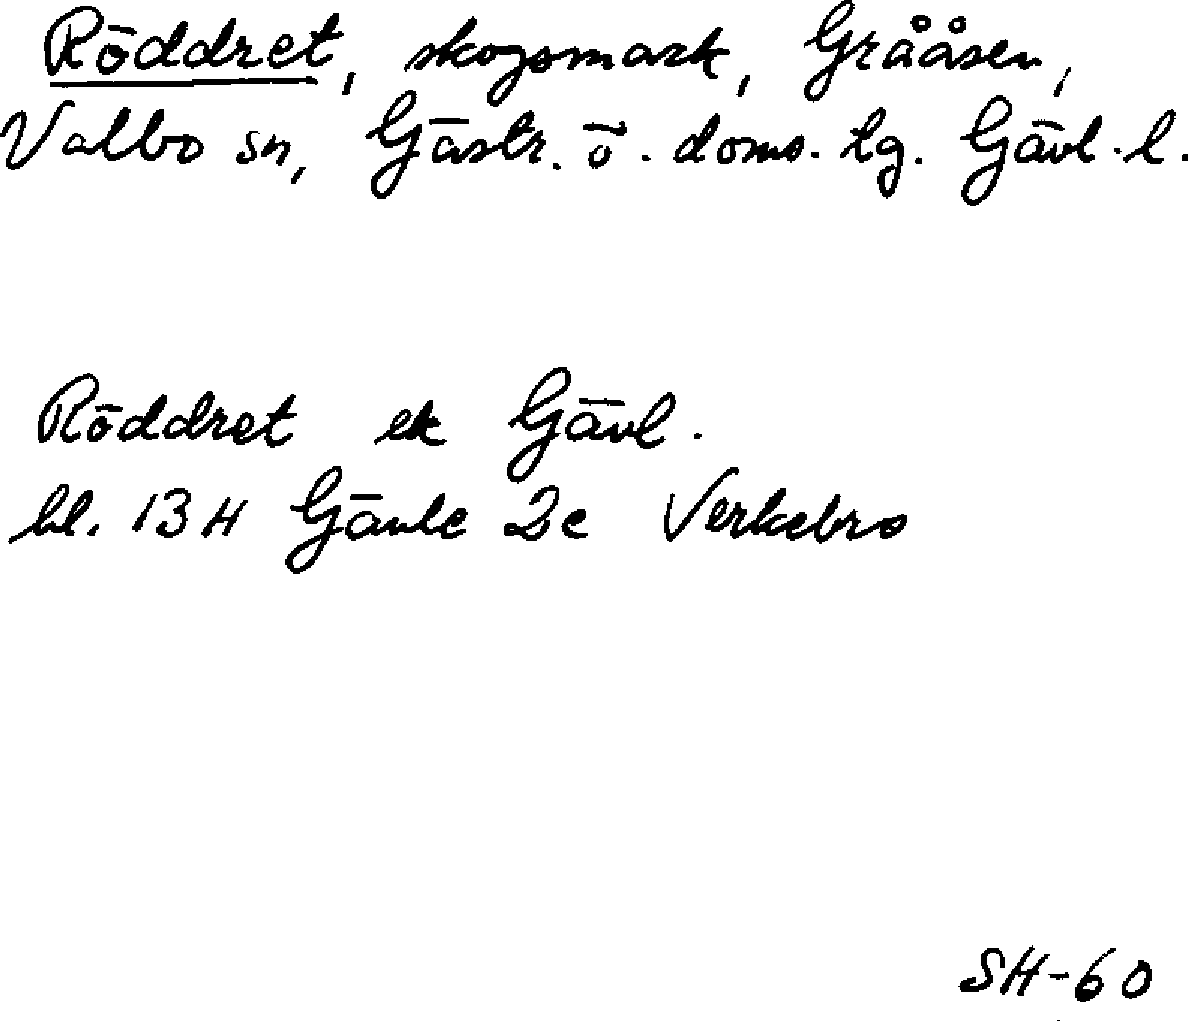 Röddret, skogsmark, Grååsen,
Valbo sn, Gästr. ö. doms. tg. Gävl. l.
Röddret ek Gävl.
bl. 13H Gävle 2c Verkebro
SH-60